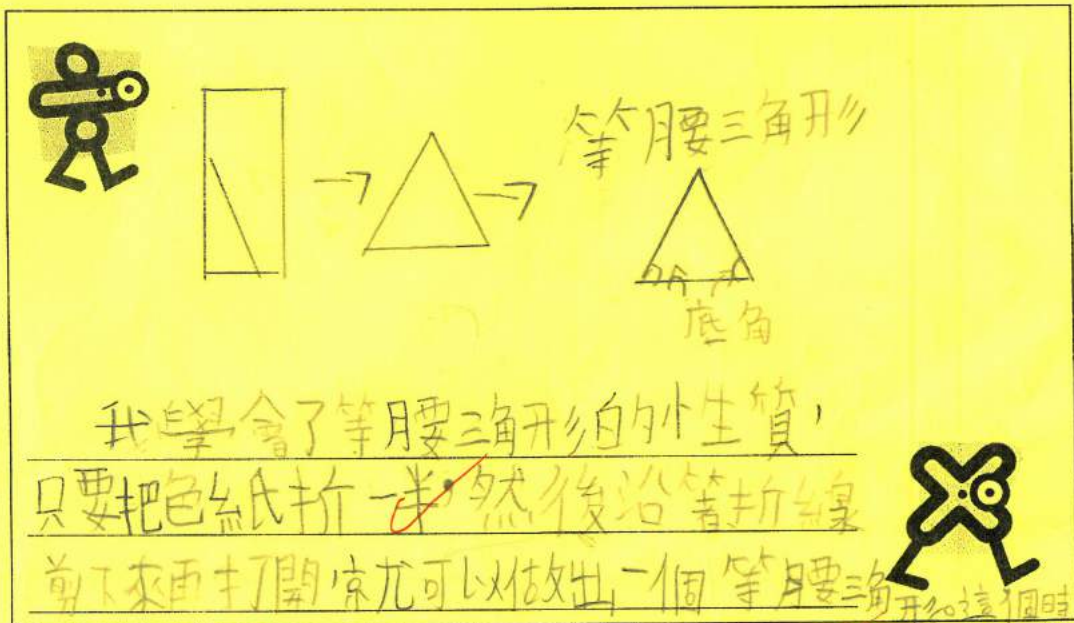 等腰三角形
底角
我學會了等腰三角形的性質,
只要把色紙折一半,然後沿著折線
剪下來再打開就可以做出一個等腰三角形。這個時